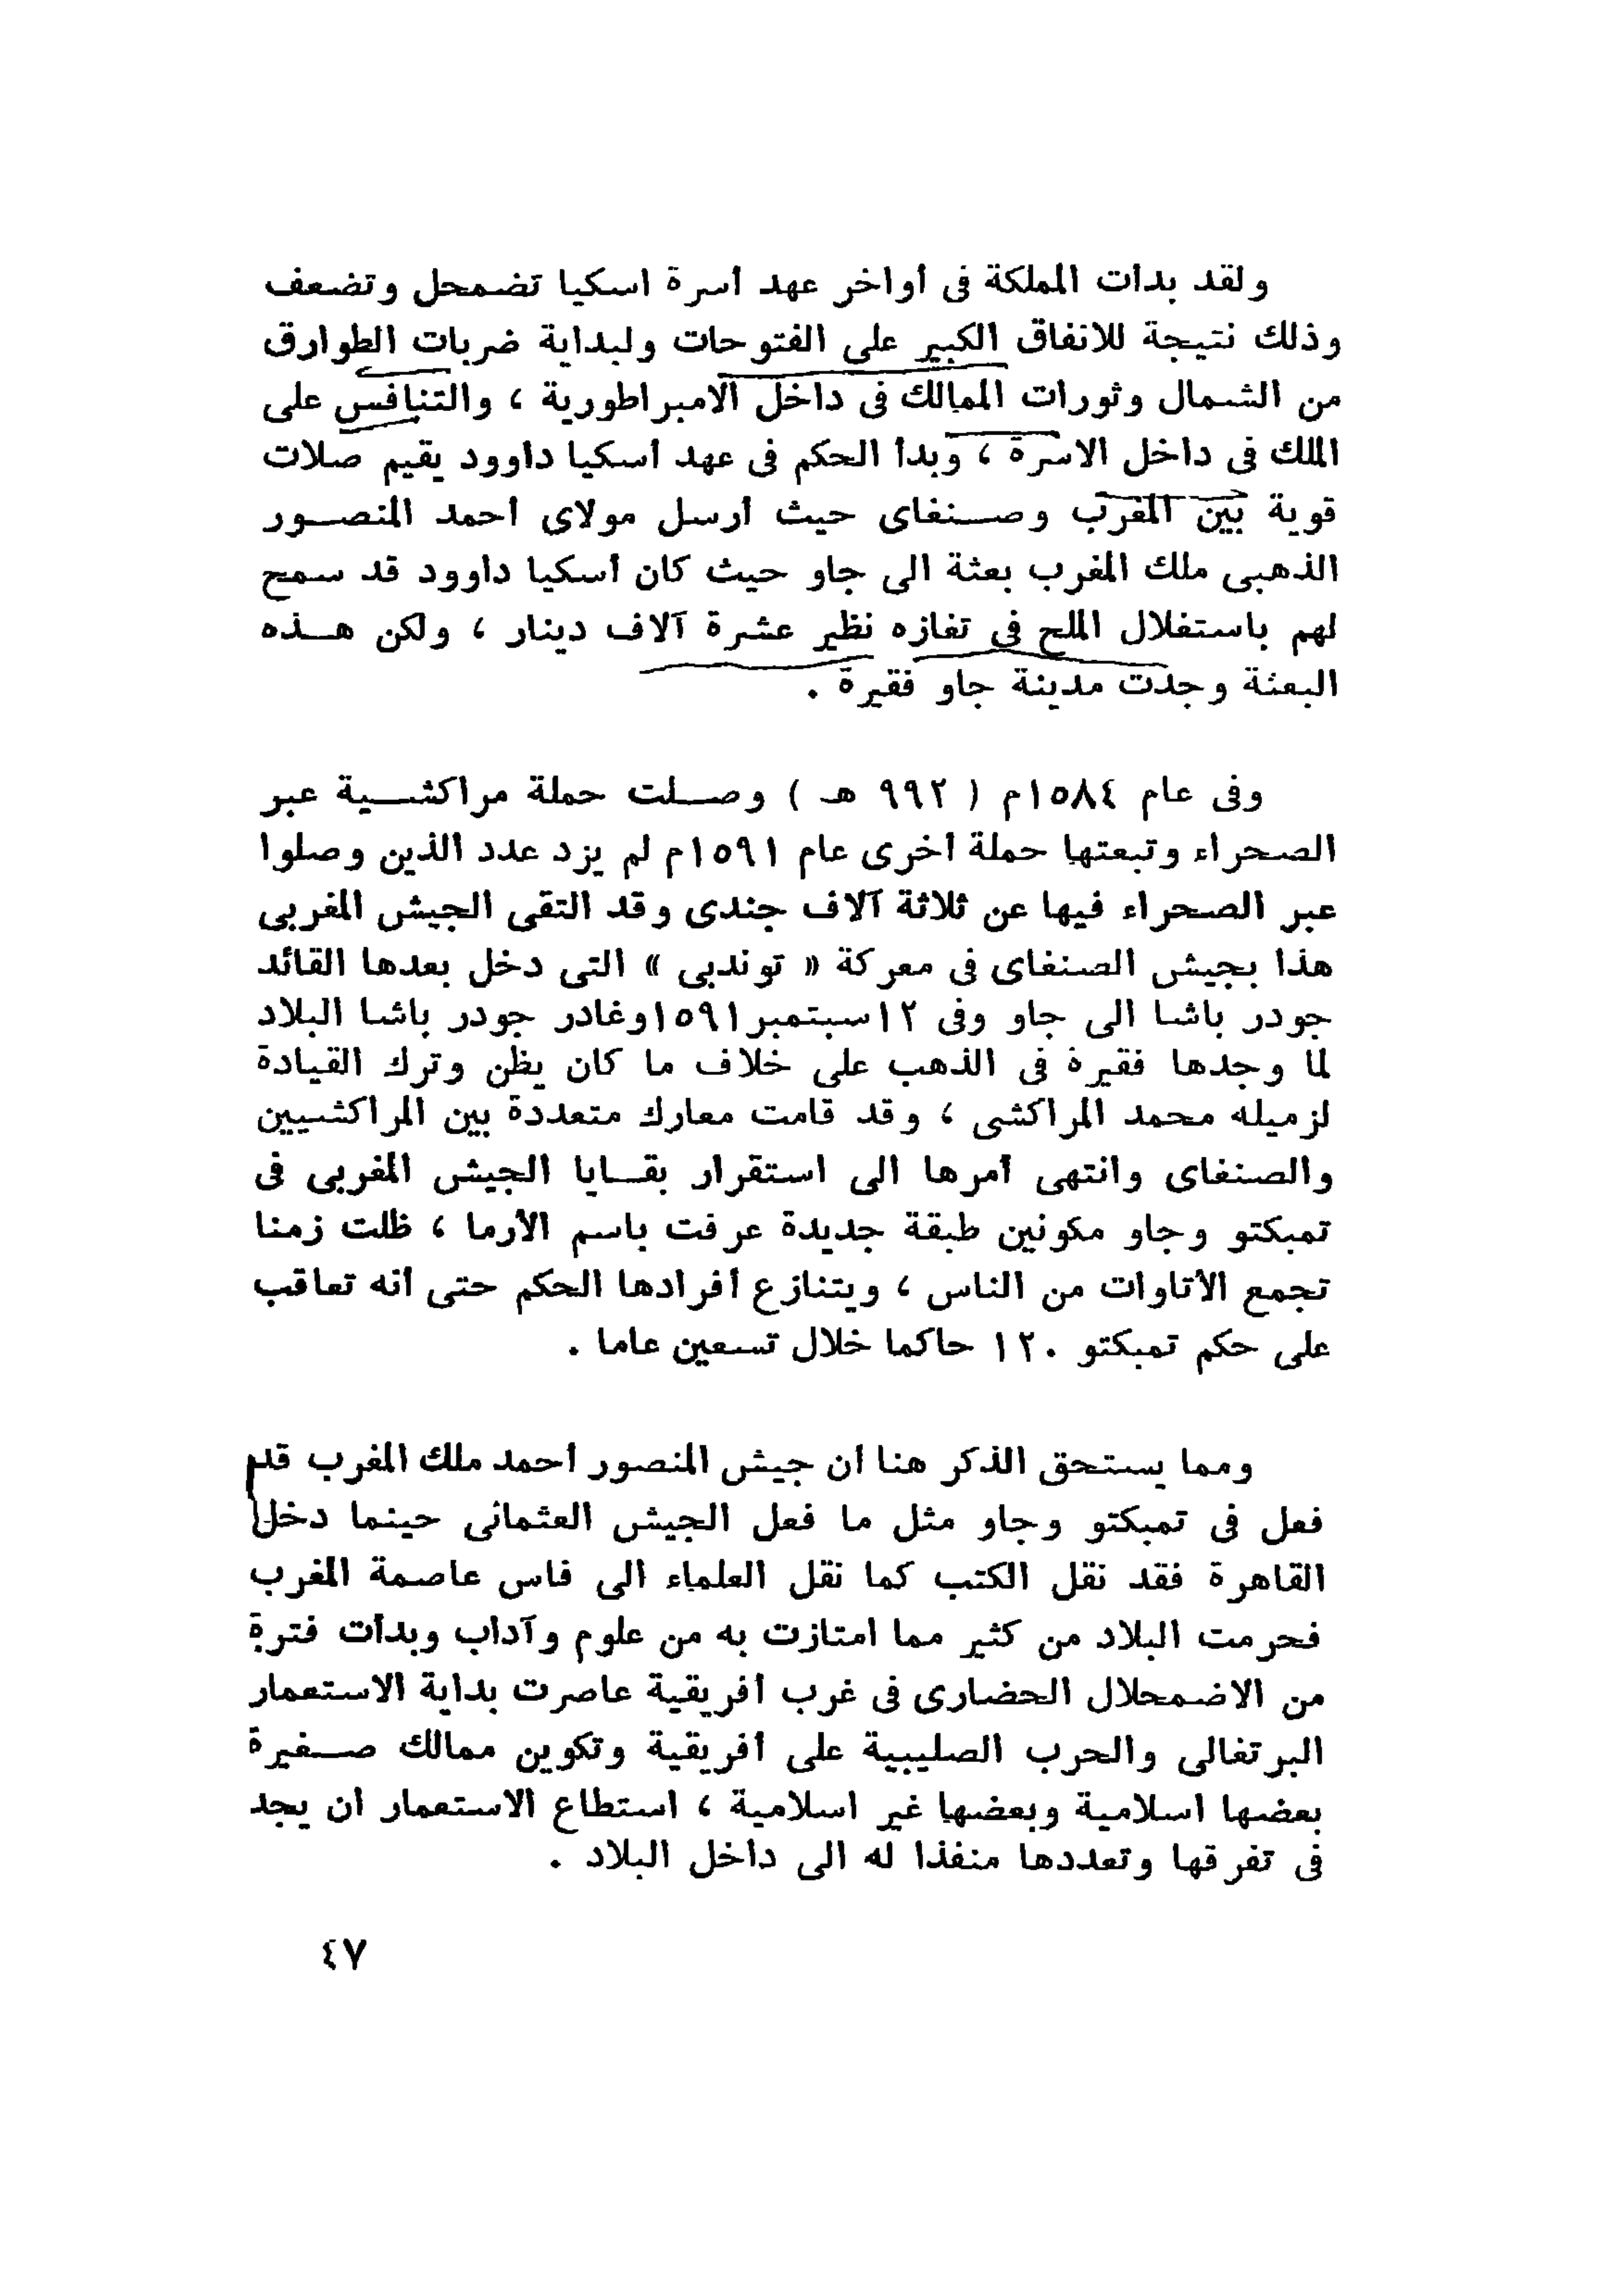 ولقد بدأت المملكة فى أواخر عهد أسرة اسكيا تضمحل وتضعف
وذلك نتيجة للانفاق الكبير على الفتوحات ولبداية ضربات الطوارق
من الشمال وثورات الممالك فى داخل الامبراطورية ، والتنافس على
الملك فى داخل الاسرة ، وبدأ الحكم فى عهد أسكيا داوود يقيم صلات
قوية بين المغرب وصنغاى حيث أرسل مولاى أحمد المنصور
الذهبى ملك المغرب بعثة الى جاو حيث كان أسكيا داوود قد سمح
لهم باستغلال الملح فى تغازه نظير عشرة آلاف دينار ، ولكن هذه
البعثة وجدت مدينة جاو فقيرة .
وفى عام ١٥٨٤م ( ٩٩٢ هـ ) وصلت حملة مراكشية عبر
الصحراء وتبعتها حملة أخرى عام ١٥٩١م لم يزد عدد الذين وصلوا
عبر الصحراء فيها عن ثلاثة آلاف جندى وقد التقى الجيش المغربى
هذا بجيش الصنغاى فى معركة « توندبى » التى دخل بعدها القائد
جودر باشا الى جاو وفى ١٢سبتمبر١٥٩١وغادر جودر باشا البلاد
لما وجدها فقيرة فى الذهب على خلاف ما كان يظن وترك القيادة
لزميله محمد المراكشى ، وقد قامت معارك متعددة بين المراكشيين
والصنغاى وانتهى أمرها الى استقرار بقايا الجيش المغربى فى
تمبكتو وجاو مكونين طبقة جديدة عرفت باسم الأرما ، ظلت زمنا
تجمع الأتاوات من الناس ، ويتنازع أفرادها الحكم حتى أنه تعاقب
على حكم تمبكتو ١٢٠ حاكما خلال تسعين عاما .
ومما يستحق الذكر هنا أن جيش المنصور أحمد ملك المغرب قد
فعل فى تمبكتو وجاو مثل ما فعل الجيش العثمانى حينما دخل
القاهرة فقد نقل الكتب كما نقل العلماء الى فاس عاصمة المغرب
فحرمت البلاد من كثير مما امتازت به من علوم وآداب وبدأت فترة
من الاضمحلال الحضارى فى غرب أفريقية عاصرت بداية الاستعمار
البرتغالى والحرب الصليبية على أفريقية وتكوين ممالك صغيرة
بعضها اسلامية وبعضها غير اسلامية ، استطاع الاستعمار أن يجد
فى تفرقها وتعددها منفذا له الى داخل البلاد .
٤٧